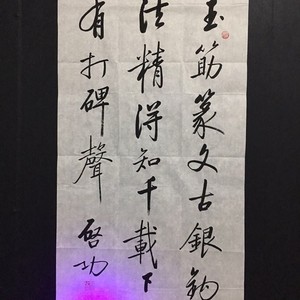 玉筯篆文古銀鈎
法精得知千載下
有打碑聲 啓功